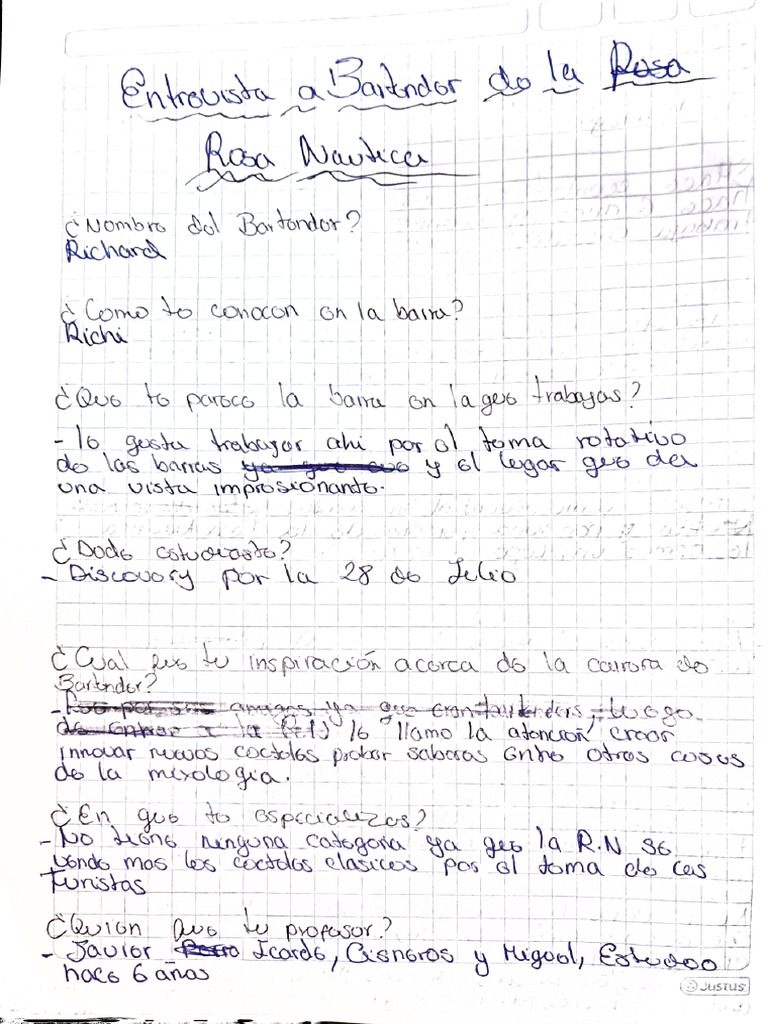 Entrevista a Bartender de la Rosa
Rosa Nautica
¿Nombre del Bartender?
Richard
¿Como te conocen en la barra?
Richi
¿Que te parece la barra en la que trabajas?
- le gusta trabajar ahi por el tema rotativo
de las barras ya que eso y el lugar que da
una vista impresionante.
¿Dode estudiaste?
- Discovery por la 28 de Julio
¿Cual fue tu inspiración acerca de la carrera de
Bartender?
- Fue por sus amigos ya que eran bartenders, luego
de entrar a la le llamo la atención crear
innovar nuevos cocteles probar saberas entre otros cosas
de la mixologia.
¿En que te especializas?
- No tiene ninguna categoria ya que la R.N se
vende mas los cocteles clasicos por el tema de los
turistas
¿Quien que tu profesor?
- Javier Icardo, Cisneros y Miguel, Estudoo
hace 6 años
JUSTUS